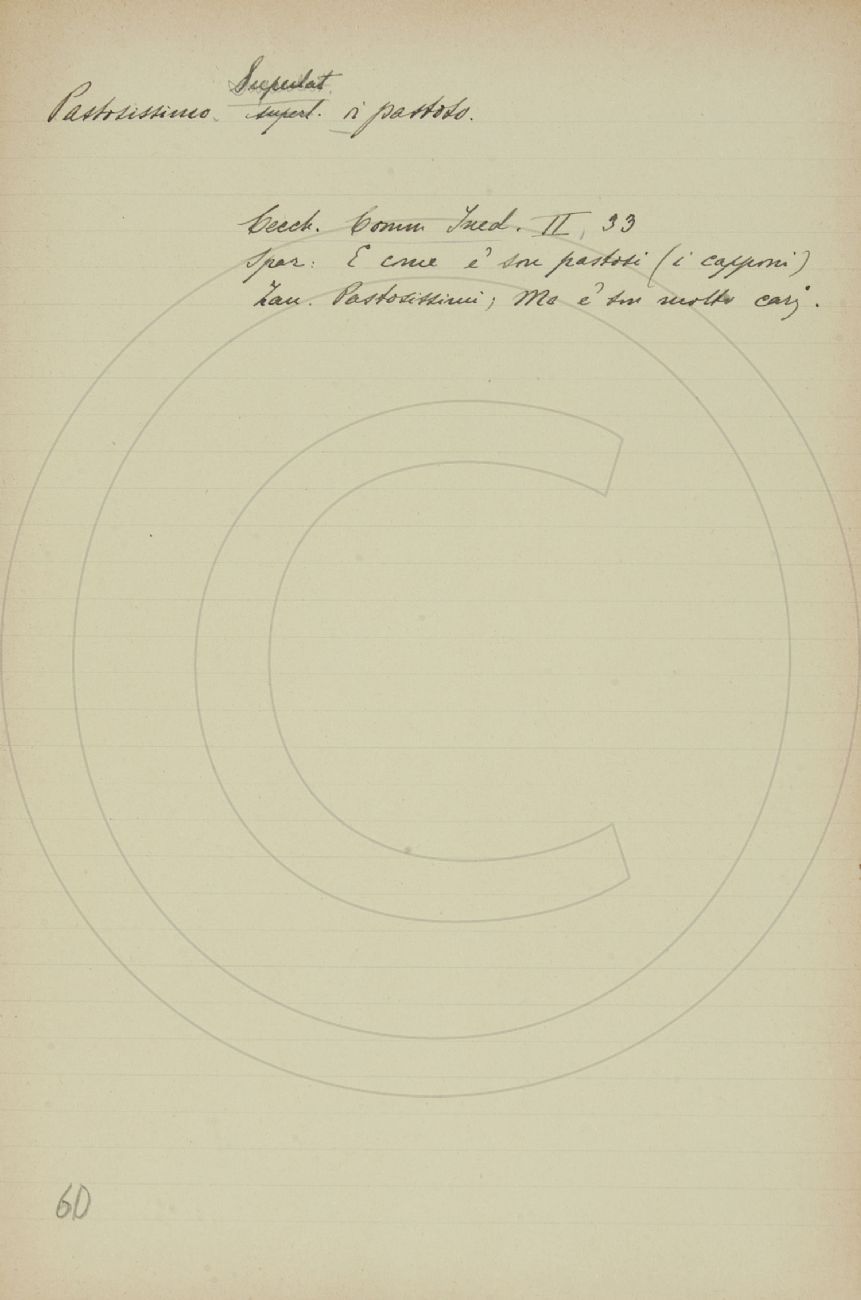 Superlat.
Pastosissimo. superl. di pastoso.
Cecch. Comm. Ined. II, 33
Spar: E come e' son pastosi (i capponi)
Zan. Pastosissimi; Ma e' son molto carj.
60